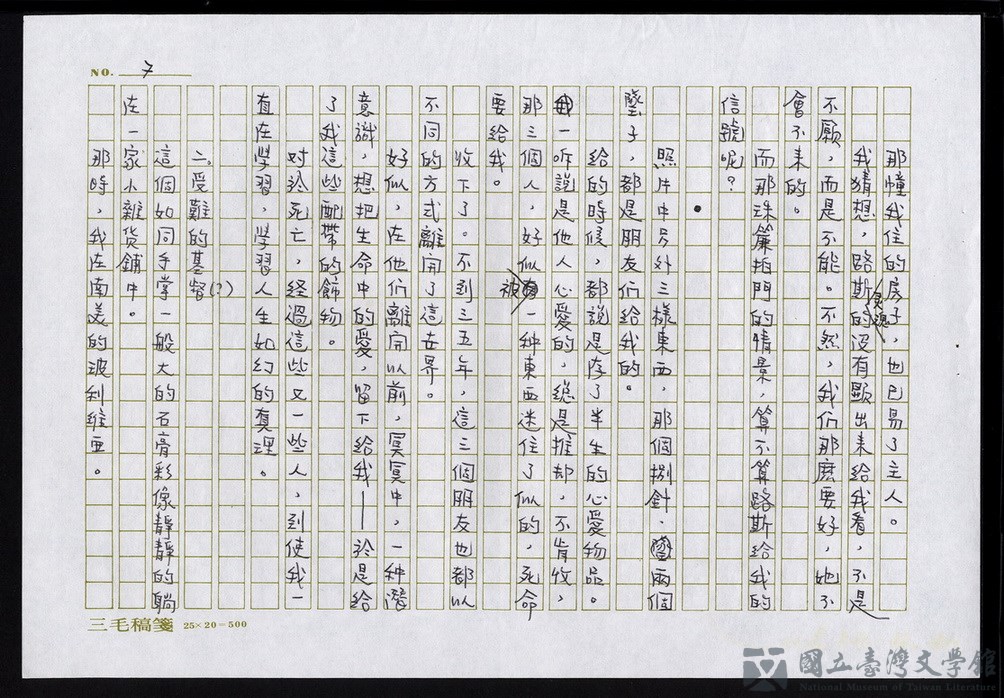 NO. 7
那幢我住的房子，也已易了主人。
我猜想，路斯的灵魂没有顯出来給我看，不是
不願，而是不能。不然，我们那麼要好，她不
會不来的。
而那珠簾拍門的情景，算不算路斯給我的
信號呢？
•
照片中另外三樣東西，那個別針、兩個
墜子，都是朋友们給我的。
給的時候，都說是存了半生的心愛物品。
我一听說是他人心愛的，總是推却，不肯收，
那三個人，好似被一种東西迷住了似的，死命
要給我。
收下了。不到三五年，這三個朋友也都以
不同的方式離開了這世界。
好似，在他们離開以前，冥冥中，一种潛
意識，想把生命中的愛，留下給我——於是給
了我這些配帶的飾物。
对於死亡，経過這些又一些人，到使我一
直在學習，學習人生如幻的真理。
二。受難的基督(?)
這個如同手掌一般大的石膏彩像靜靜的躺
在一家小雜货鋪中。
那時，我在南美的波利維亞。
三毛稿箋 25×20=500
國立臺灣文學館
National Museum of Taiwan Literature